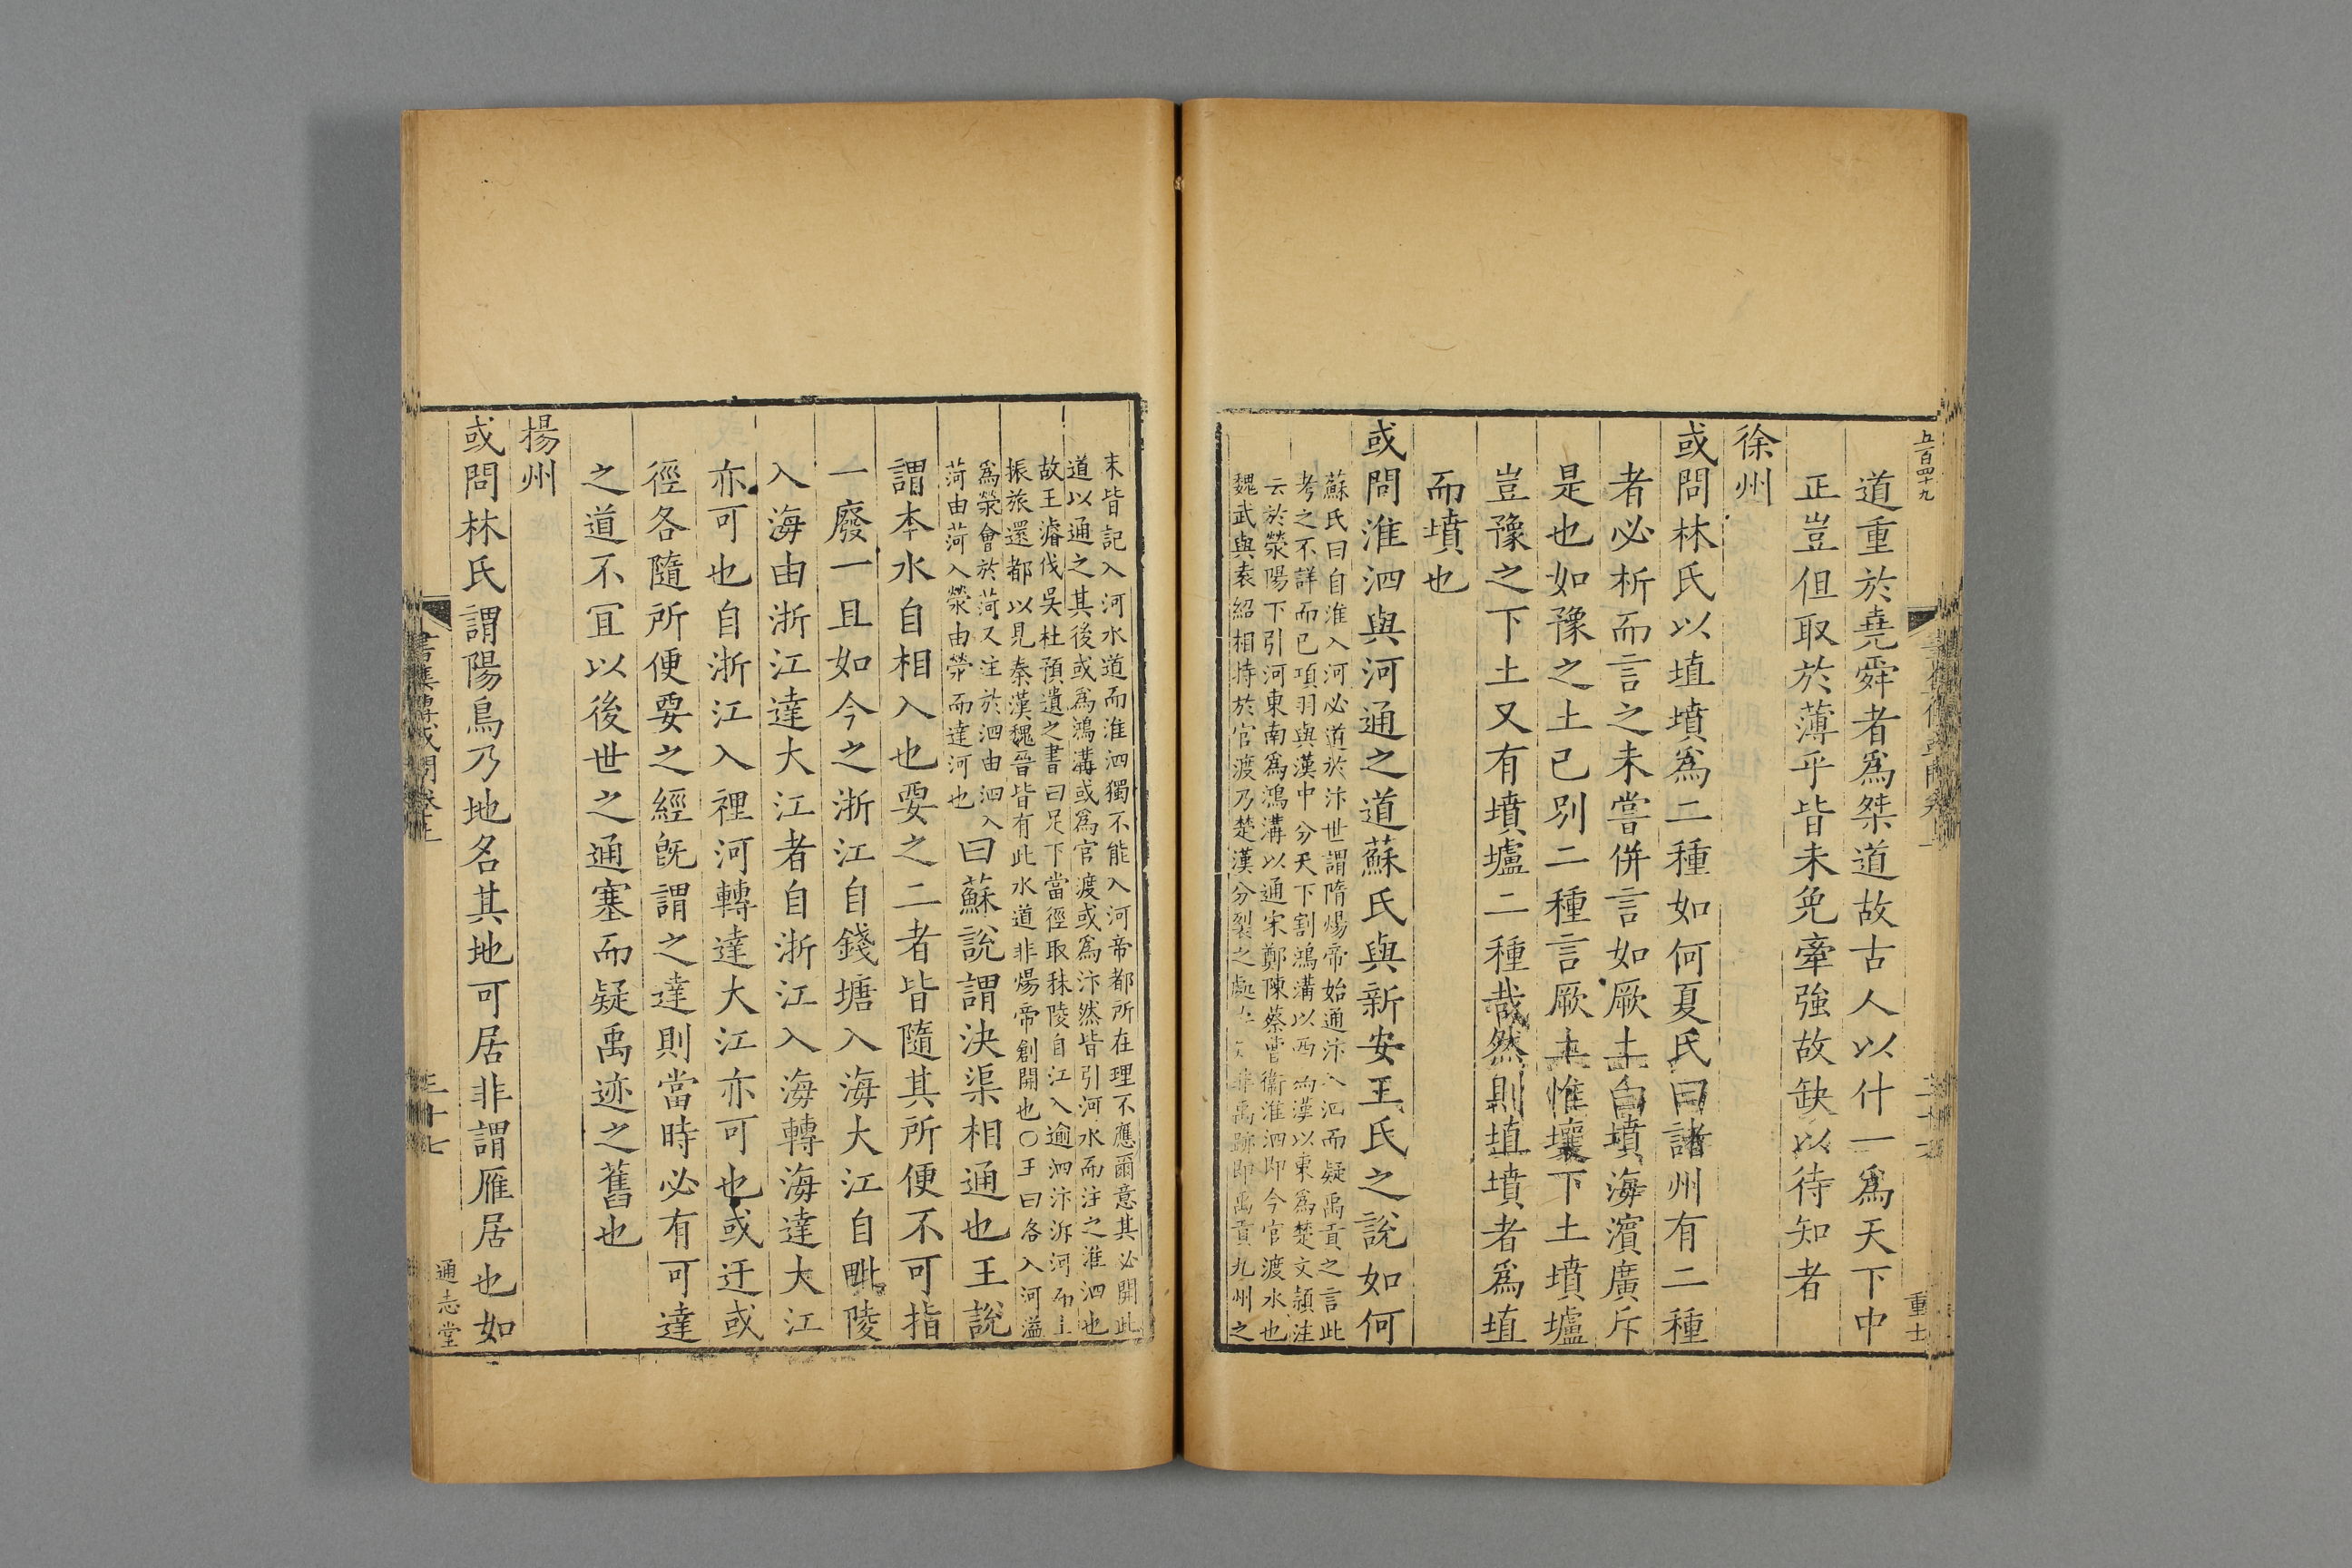 五百四十九
道重於堯舜者爲桀道故古人以什一爲天下中
正豈但取於薄乎皆未免牽強故缺以待知者
徐州
或問林氏以埴墳爲二種如何夏氏曰諸州有二種
者必析而言之未嘗併言如厥土白墳海濱廣斥
是也如豫之土已別二種言厥土惟壤下土墳壚
豈豫之下土又有墳壚二種哉然則埴墳者爲埴
而墳也
或問淮泗與河通之道蘇氏與新安王氏之說如何
蘇氏曰自淮入河必道於汴世謂隋煬帝始通汴入泗而疑禹貢之言此
考之不詳而已項羽與漢中分天下割鴻溝以西爲漢以東爲楚文穎注
云於滎陽下引河東南爲鴻溝以通宋鄭陳蔡曹衞淮泗即今官渡水也
魏武與袁紹相持於官渡乃楚漢分裂之處 非禹跡即禹貢九州之
重士
末皆記入河水道而淮泗獨不能入河帝都所在理不應爾意其必開此
道以通之其後或爲鴻溝或爲官渡或爲汴然皆引河水而注之淮泗也
故王濬伐吳杜預遺之書曰足下當徑取秣陵自江入逾泗汴泝河而上
振旅還都以見秦漢魏晉皆有此水道非煬帝創開也○王曰各入河溢
爲滎會於菏又注於泗由泗入
菏由菏入滎由滎而達河也
曰蘇說謂決渠相通也王說
謂本水自相入也要之二者皆隨其所便不可指
一廢一且如今之浙江自錢塘入海大江自毗陵
入海由浙江達大江者自浙江入海轉海達大江
亦可也自浙江入裡河轉達大江亦可也或迂或
徑各隨所便要之經旣謂之達則當時必有可達
之道不冝以後世之通塞而疑禹迹之舊也
揚州
或問林氏謂陽鳥乃地名其地可居非謂雁居也如
書集傳或問卷上
三十七
通志堂